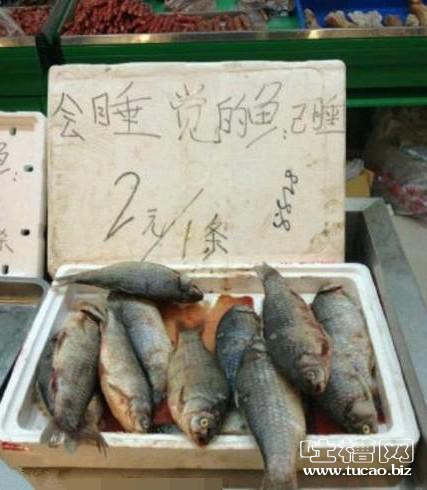 会睡觉的鱼:已睡
2元/1条
吐槽网
www.tucao.biz